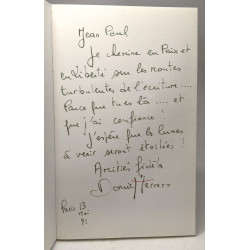 Jean Paul
Je chemine en Paix et
en liberté sur les Routes
turbulentes de l'écriture ....
Parce que tu es là .... et
que j'ai confiance !
J'espère que les lunes
à venir seront étoilées !
Amitiés fidèles
Paris 13
Mai